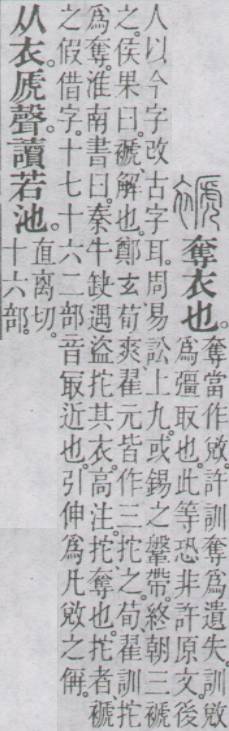 褫 奪衣也。
奪當作敚。許訓奪爲遺失。訓敚
爲彊取也。此等恐非許原文。後
人以今字改古字耳。周易訟上九。或錫之鞶帶。終朝三褫
之。侯果曰。褫、解也。鄭玄荀爽翟元皆作三拕之。荀翟訓拕
爲奪。淮南書曰。秦牛缺遇盜拕其衣。高注。拕、奪也。拕者、褫
之假借字。十七十六二部音冣近也。引伸爲凡敚之偁。
从衣。虒聲。讀若池。
直离切。
十六部。